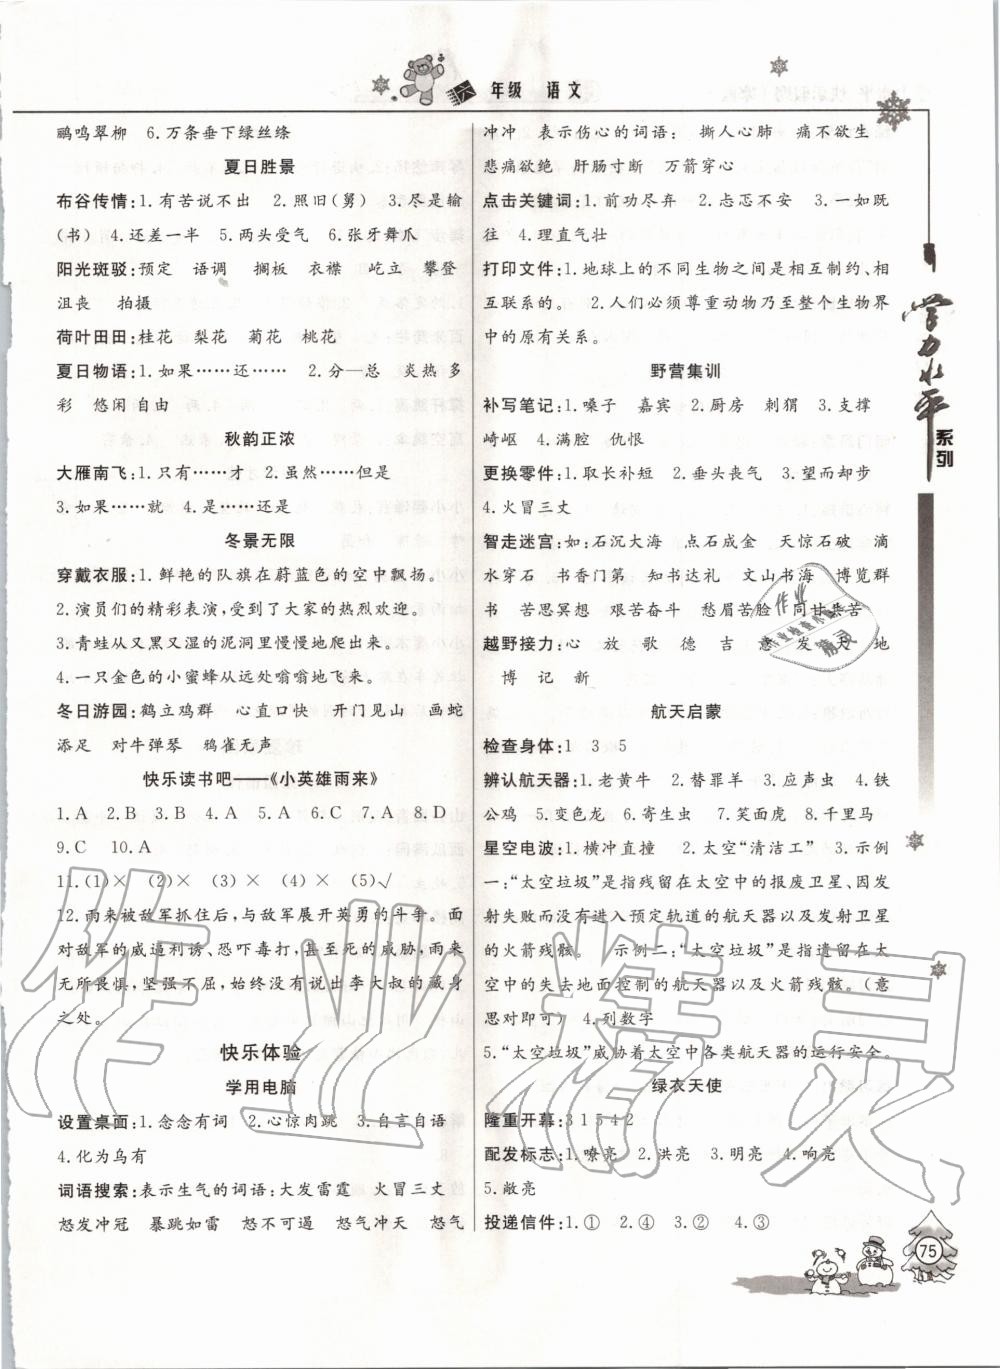 六年级 语文
鹂鸣翠柳 6.万条垂下绿丝绦
夏日胜景
布谷传情:1.有苦说不出 2.照旧(舅) 3.尽是输
(书) 4.还差一半 5.两头受气 6.张牙舞爪
阳光斑驳:预定 语调 搁板 衣襟 屹立 攀登
沮丧 拍摄
荷叶田田:桂花 梨花 菊花 桃花
夏日物语:1.如果……还…… 2.分—总 炎热 多
彩 悠闲 自由
秋韵正浓
大雁南飞:1.只有……才 2.虽然……但是
3.如果……就 4.是……还是
冬景无限
穿戴衣服:1.鲜艳的队旗在蔚蓝色的空中飘扬。
2.演员们的精彩表演,受到了大家的热烈欢迎。
3.青蛙从又黑又湿的泥洞里慢慢地爬出来。
4.一只金色的小蜜蜂从远处嗡嗡地飞来。
冬日游园:鹤立鸡群 心直口快 开门见山 画蛇
添足 对牛弹琴 鸦雀无声
快乐读书吧——《小英雄雨来》
1.A 2.B 3.B 4.A 5.A 6.C 7.A 8.D
9.C 10.A
11.(1)× (2)× (3)× (4)× (5)√
12.雨来被敌军抓住后,与敌军展开英勇的斗争。面
对敌军的威逼利诱、恐吓毒打,甚至死的威胁,雨来
无所畏惧,坚强不屈,始终没有说出李大叔的藏身
之处。
快乐体验
学用电脑
设置桌面:1.念念有词 2.心惊肉跳 3.自言自语
4.化为乌有
词语搜索:表示生气的词语:大发雷霆 火冒三丈
怒发冲冠 暴跳如雷 怒不可遏 怒气冲天 怒气
冲冲 表示伤心的词语: 撕人心肺 痛不欲生
悲痛欲绝 肝肠寸断 万箭穿心
点击关键词:1.前功尽弃 2.忐忑不安 3.一如既
往 4.理直气壮
打印文件:1.地球上的不同生物之间是相互制约、相
互联系的。 2.人们必须尊重动物乃至整个生物界
中的原有关系。
野营集训
补写笔记:1.嗓子 嘉宾 2.厨房 刺猬 3.支撑
崎岖 4.满腔 仇恨
更换零件:1.取长补短 2.垂头丧气 3.望而却步
4.火冒三丈
智走迷宫:如:石沉大海 点石成金 天惊石破 滴
水穿石 书香门第 知书达礼 文山书海 博览群
书 苦思冥想 艰苦奋斗 愁眉苦脸 同甘共苦
越野接力:心 放 歌 德 吉 意 发 天 地
博 记 新
航天启蒙
检查身体:1 3 5
辨认航天器:1.老黄牛 2.替罪羊 3.应声虫 4.铁
公鸡 5.变色龙 6.寄生虫 7.笑面虎 8.千里马
星空电波:1.横冲直撞 2.太空“清洁工” 3.示例
一:“太空垃圾”是指残留在太空中的报废卫星、因发
射失败而没有进入预定轨道的航天器以及发射卫星
的火箭残骸。 示例二:“太空垃圾”是指遗留在太
空中的失去地面控制的航天器以及火箭残骸。(意
思对即可) 4.列数字
5.“太空垃圾”威胁着太空中各类航天器的运行安全。
绿衣天使
隆重开幕:3 1 5 4 2
配发标志:1.嘹亮 2.洪亮 3.明亮 4.响亮
5.敞亮
投递信件:1.① 2.④ 3.② 4.③
学力水平
系列
75
作业精灵